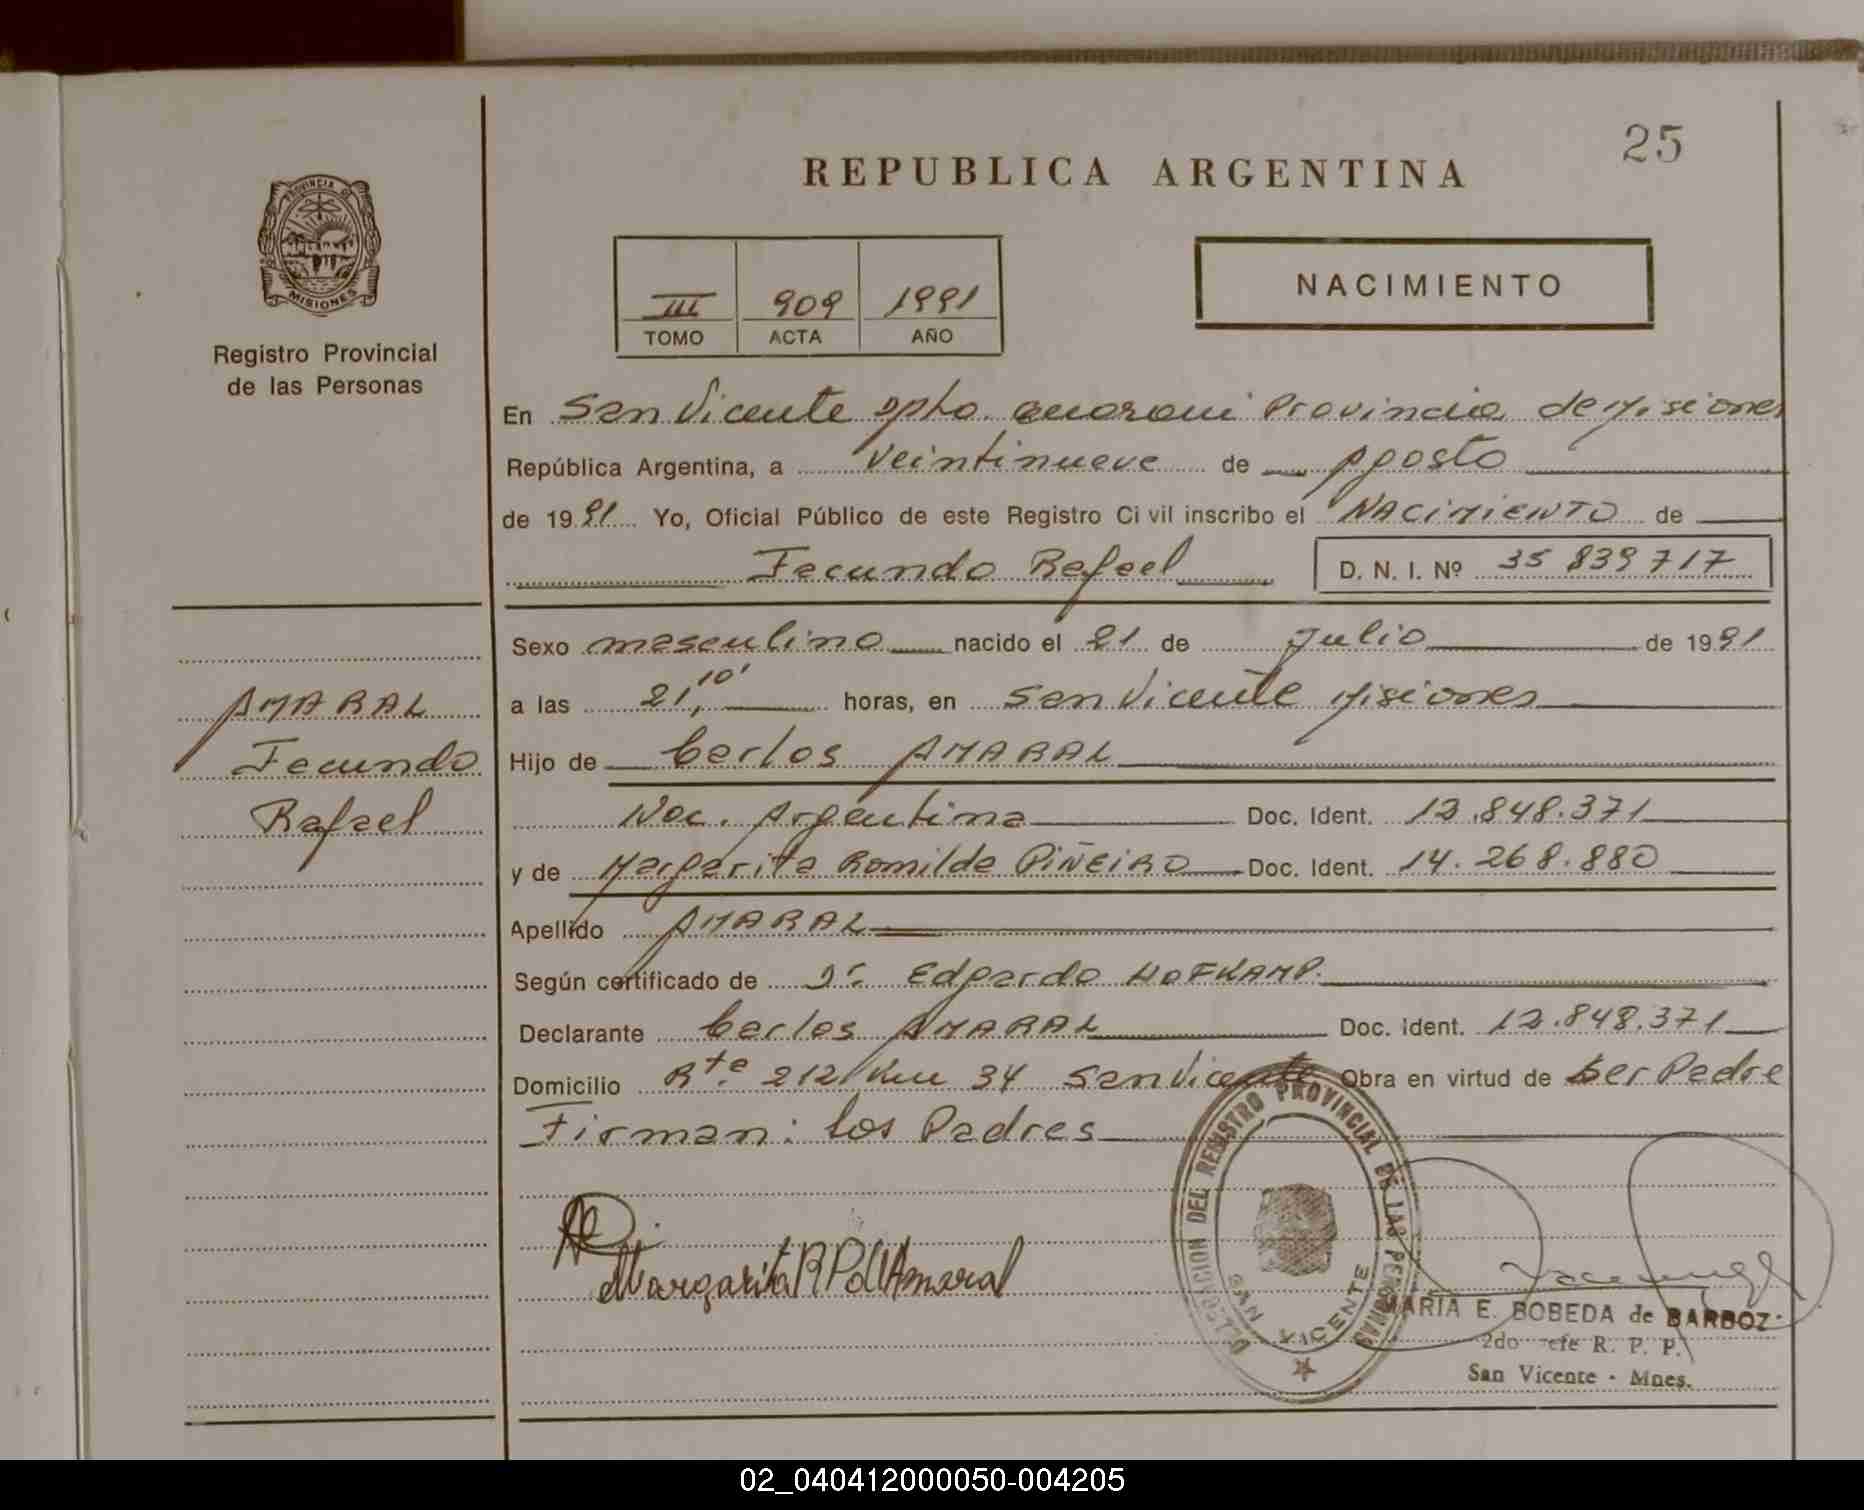 25
REPUBLICA ARGENTINA
PROVINCIA DE
MISIONES
Registro Provincial
de las Personas
III 909 1991
TOMO ACTA AÑO
NACIMIENTO
En San Vicente Dpto. Guarani Provincia de Misiones
República Argentina, a Veintinueve de Agosto
de 1991 Yo, Oficial Público de este Registro Civil inscribo el NACIMIENTO de
Facundo Rafael D. N. I. Nº 35 839 717
Sexo masculino nacido el 21 de Julio de 1991
AMARAL
Facundo
Rafael
a las 21,10' horas, en San Vicente Misiones
Hijo de Carlos AMARAL
Nac. Argentina Doc. Ident. 12.848.371
y de Margarita Romilda PIÑEIRO Doc. Ident. 14.268.880
Apellido AMARAL
Según certificado de Dr. Edgardo HOFKAMP.
Declarante Carlos AMARAL Doc. Ident. 12.848.371
Domicilio Rta 212 Km 34 San Vicente Obra en virtud de Ser Padre
Firman: Los Padres
Margarita R P de Amaral
DELEGACION DEL REGISTRO PROVINCIAL DE LAS PERSONAS
SAN VICENTE
MARIA E. BOBEDA de BARBOZ
2do Jefe R. P. P.
San Vicente - Mnes.
02_040412000050-004205